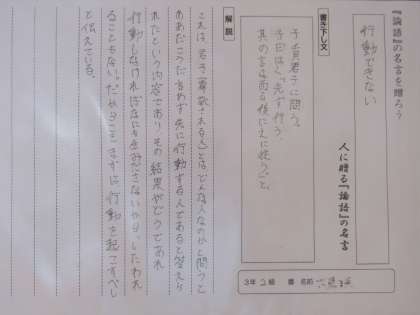 『論語』の名言を贈ろう
行動できない
人に贈る『論語』の名言
書き下し文
子貢君子に問う。
子曰はく、「先ず行う
其の言は而る後にこれに従う」と。
3年 2組 番 名前
解説
これは、君子(尊敬される人)とはどんな人なのかと問うと
ああだこうだ言わず先に行動する人であると答えら
れたという内容であり、その結果がどうであれ
行動しなければなにも
ることもない。だからこそまずは行動を起こすべし
と伝えている。